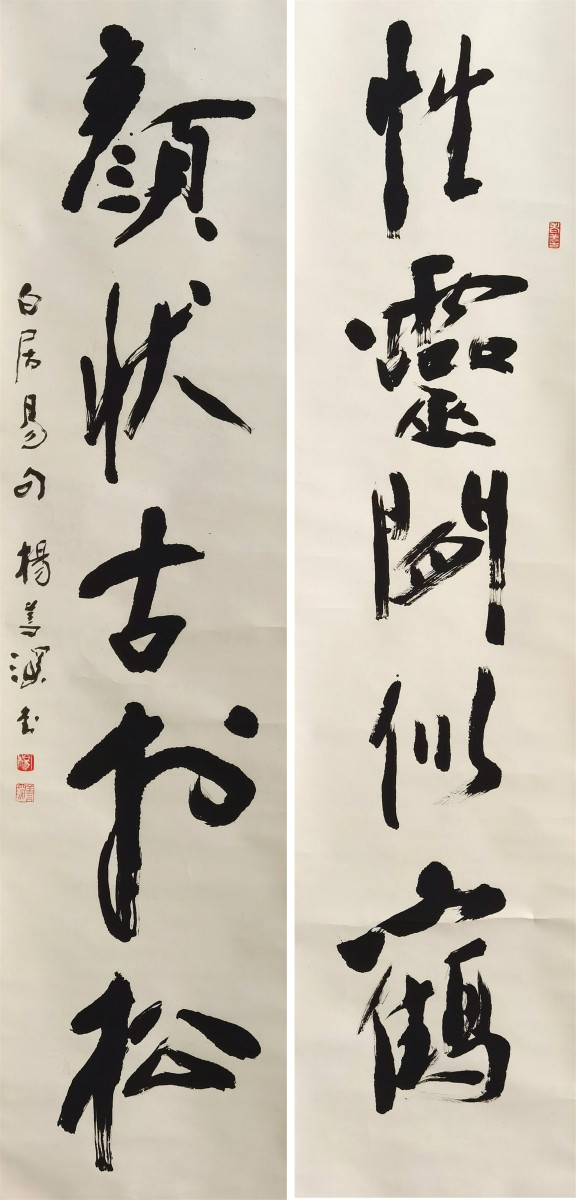 性靈閒似鶴
顏狀古於松
白居易句 楊善深書